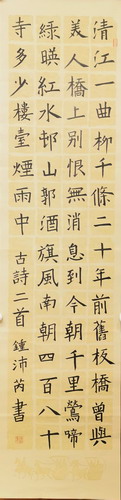 清江一曲柳千條二十年前舊板橋曾與
美人橋上別恨無消息到今朝千里鶯啼
綠暎紅水邨山郭酒旗風南朝四百八十
寺多少樓臺煙雨中 古詩二首 鍾沛芮書